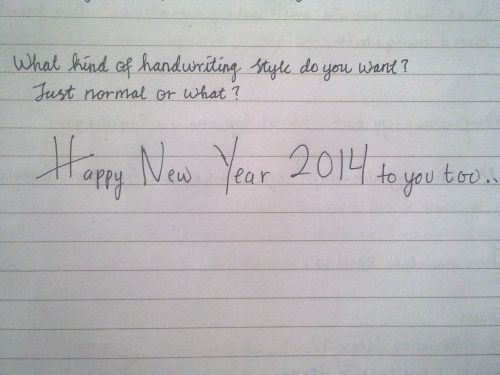 What kind of handwriting style do you want?
Just normal or what?
Happy New Year 2014 to you too..